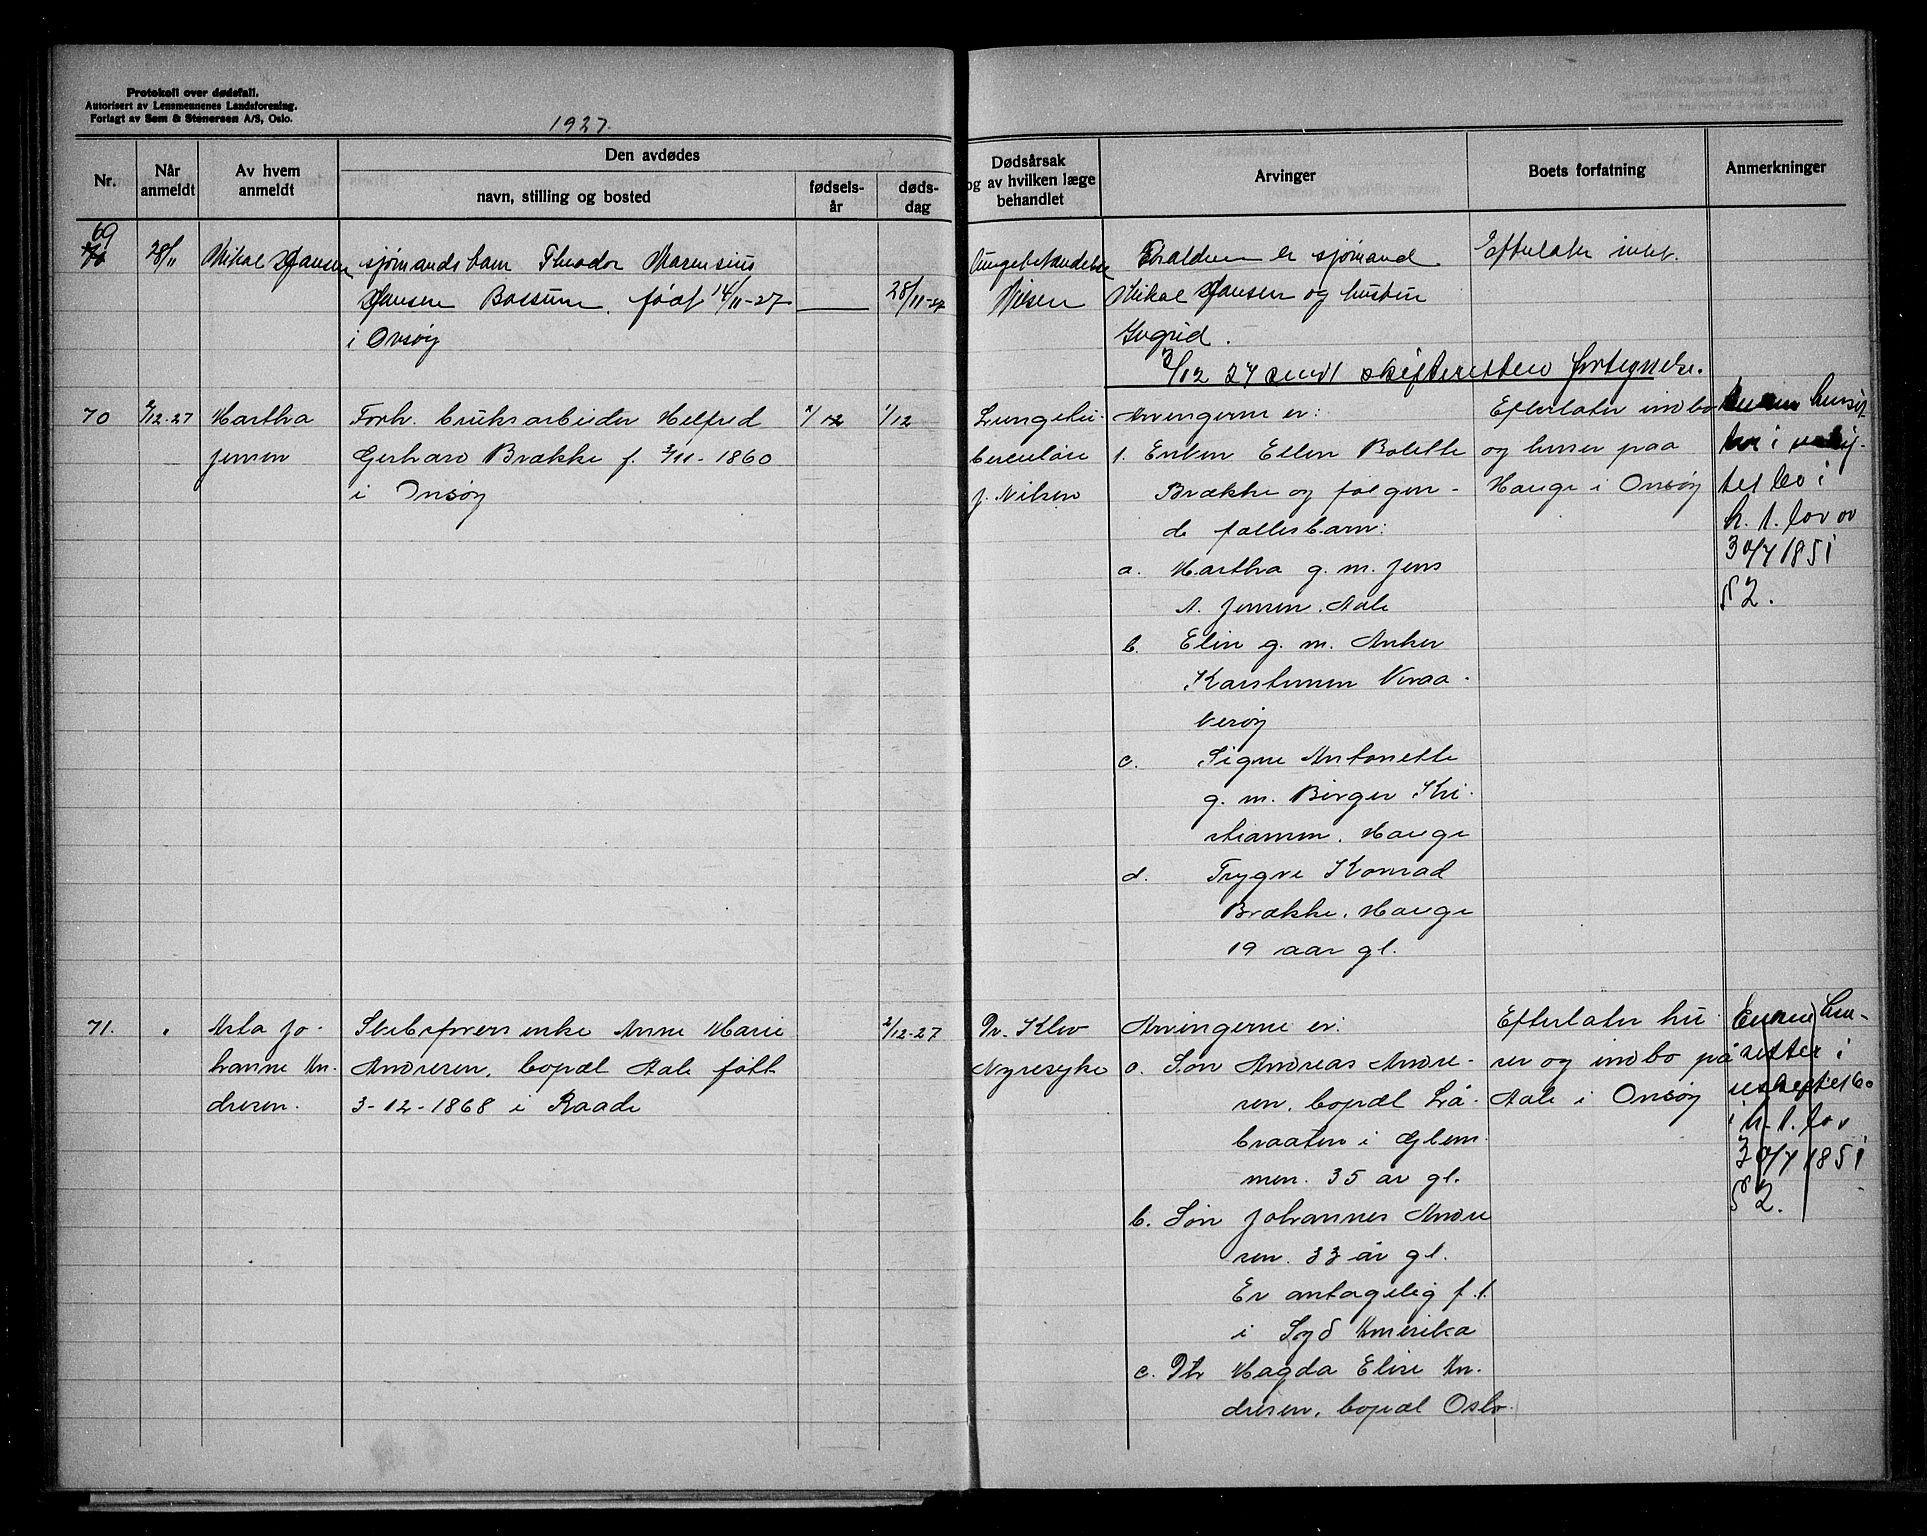 Protokoll over dødsfall.
Autorisert av Lensmennenes Landsforening.
Forlagt av Sem & Stenersen A/S, Oslo.
1927.
Nr.
Når
anmeldt
Av hvem
anmeldt
Den avdødes
navn, stilling og bosted
fødsels-
år
døds-
dag
Dødsårsak
og av hvilken læge
behandlet
Arvinger
Boets forfatning
Anmerkninger
69
28/11
Mikal Hansen
sjømands barn Theodor Marensius
Hansen Bossum, født 14/11-27
i Onsøy
28/11-27
Lungebetændelse
Nilsen
Forældrene er sjømand
Mikal Hansen og hustru
Ingrid.
Efterlater intet.
3/12 27 sendt skifteretten fortegnelse.
70
2/12-27
Martha
Jensen
Forh. bruksarbeider Helfred
Gerhard Brække f. 3/11-1860
i Onsøy
1/12
1/12
Lungetu-
berculose
J. Nilsen
Arvingerne er:
1. Enken Ellen Bolette
Brække og følgen-
de fællesbarn:
a. Martha g. m. Jens
A. Jensen, Aale
b. Elin g. m. Anker
Karstensen Kraa-
kerøy
c. Signe Antonette
g. m. Birger Kri-
stiansen, Hauge
d. Trygve Konrad
Brække, Hauge
19 aar gl.
Efterlater indbo
og huser paa
Hauge i Onsøy
Enken hensit-
ter i uskif-
tet bo i
h. t. lov av
30/7 1851
§ 2.
71.
"
Asta Jo-
hanne An-
dresen.
Skibsførers enke Anne Marie
Andresen, bopæl Aale født
3-12-1868 i Raade
2/12-27
Dr. Klev
Nyresyke
Arvingerne er:
a. Søn Andreas Andre-
sen, bopæl Lis-
braaten i Glem-
men. 35 år gl.
b. Søn Johannes Andre
sen. 33 år gl.
Er antagelig f. t.
i Syd Amerika
c. Dtr Magda Elise An-
dresen, bopæl Oslo.
Efterlater hu-
ser og indbo på
Aale i Onsøy
Enken hen-
sitter i
uskiftet bo
i h. t. lov
30/7 1851
§ 2.